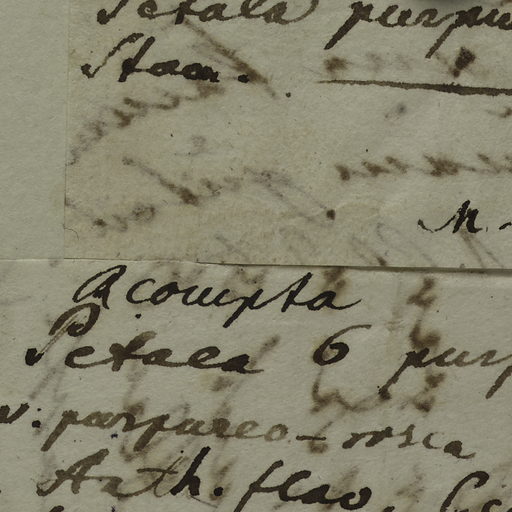 Petala purpu
Stam.
M.
Acompta
Petala 6 purp
v. purpureo-rosea
Anth. flav.